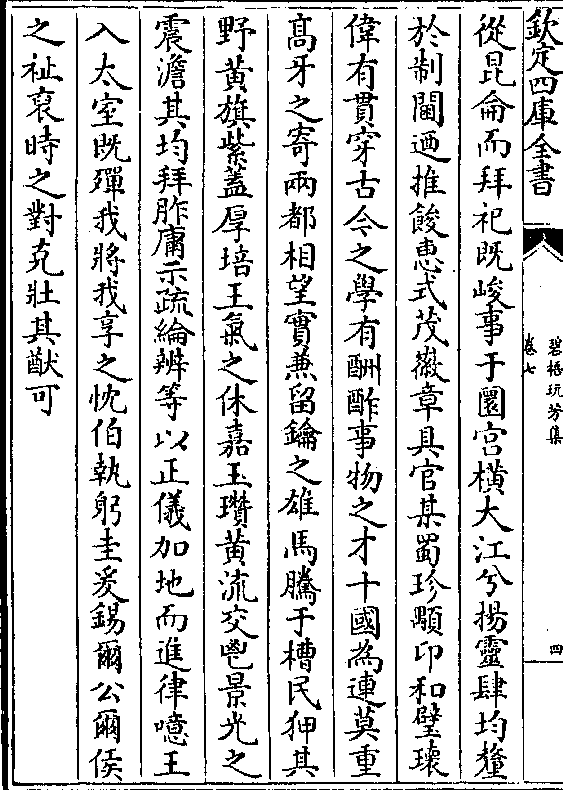 欽定四庫全書
碧梧玩芳集
卷七
四
從昆侖而拜祀既峻事于圜宮橫大江兮揚靈肆均釐
於制閫迺推餕惠式茂徽章具官某蜀珍顒卬和璧瓌
偉有貫穿古今之學有酬酢事物之才十國為連莫重
高牙之寄兩都相望實兼留鑰之雄馬騰于槽民狎其
野黃旗紫蓋厚培王氣之休嘉玉瓚黃流交鬯景光之
震澹其均拜胙庸示疏綸辨等以正儀加地而進律噫王
入太室既殫我將我享之忱伯執躬圭爰錫爾公爾侯
之祉裒時之對克壯其猷可